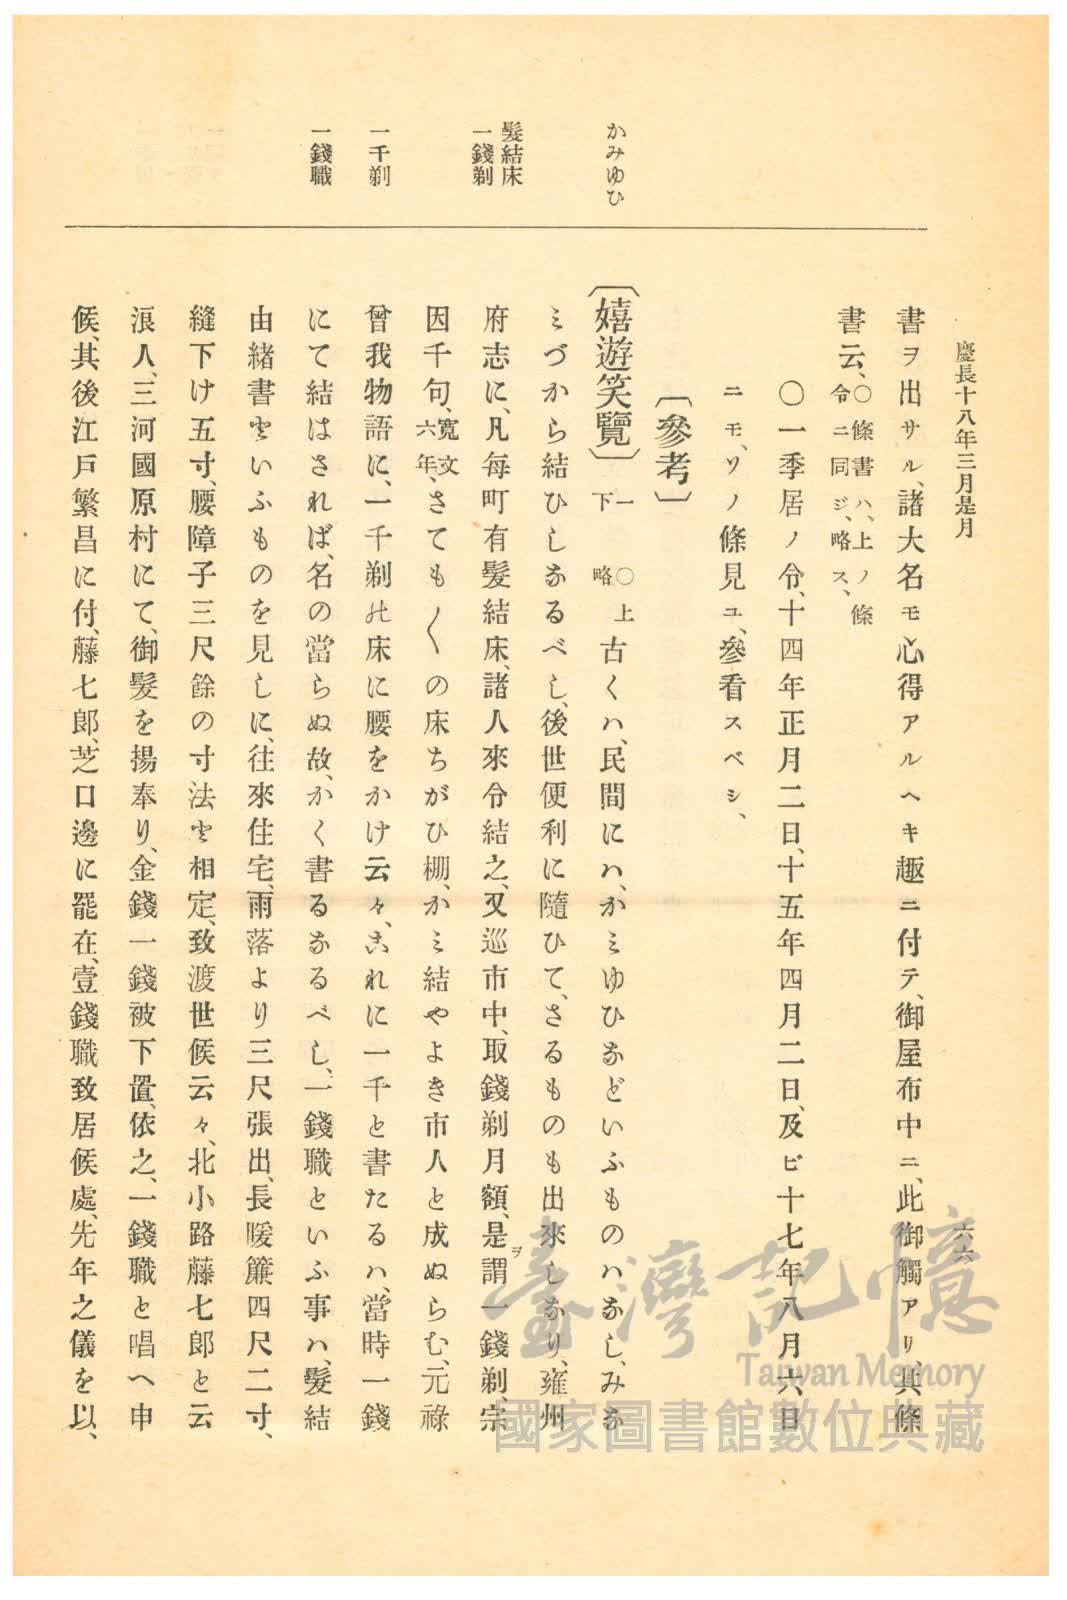 慶長十八年三月是月
六六
書ヲ出サル、諸大名モ心得アルヘキ趣ニ付テ、御屋布中ニ、此御觸アリ、其條
書云、〇條書ハ、上ノ條令ニ同ジ、略ス、
〇一季居ノ令、十四年正月二日、十五年四月二日、及ビ十七年八月六日
ニモ、ソノ條見ユ、參看スベシ、
〔參考〕
かみゆひ
〔嬉遊笑覽〕一下 〇上略 古くハ、民間にハ、かミゆひなどいふものハなし、みな
ミづから結ひしなるべし、後世便利に隨ひて、さるものも出來しなり、雍州
髮結床
一錢剃
府志に、凡每町有髮結床、諸人來令結之、又巡市中、取錢剃月額、是ヲ謂一錢剃、宗
因千句、寬文六年、さても〳〵の床ちがひ棚、かミ結やよき市人と成ぬらむ、元祿
一千剃
曾我物語に、一千剃の床に腰をかけ云々、これに一千と書たるハ、當時一錢
一錢職
にて結はされば、名の當らぬ故、かく書るなるべし、一錢職といふ事ハ、髮結
由緒書といふものを見しに、往來住宅、雨落より三尺張出、長暖簾四尺二寸、
縫下け五寸、腰障子三尺餘の寸法と相定、致渡世候云々、北小路藤七郎と云
浪人、三河國原村にて、御髮を揚奉り、金錢一錢被下置、依之、一錢職と唱へ申
候、其後江戶繁昌に付、藤七郎、芝口邊に罷在、壹錢職致居候處、先年之儀を以、
臺灣記憶
Taiwan Memory
國家圖書館數位典藏